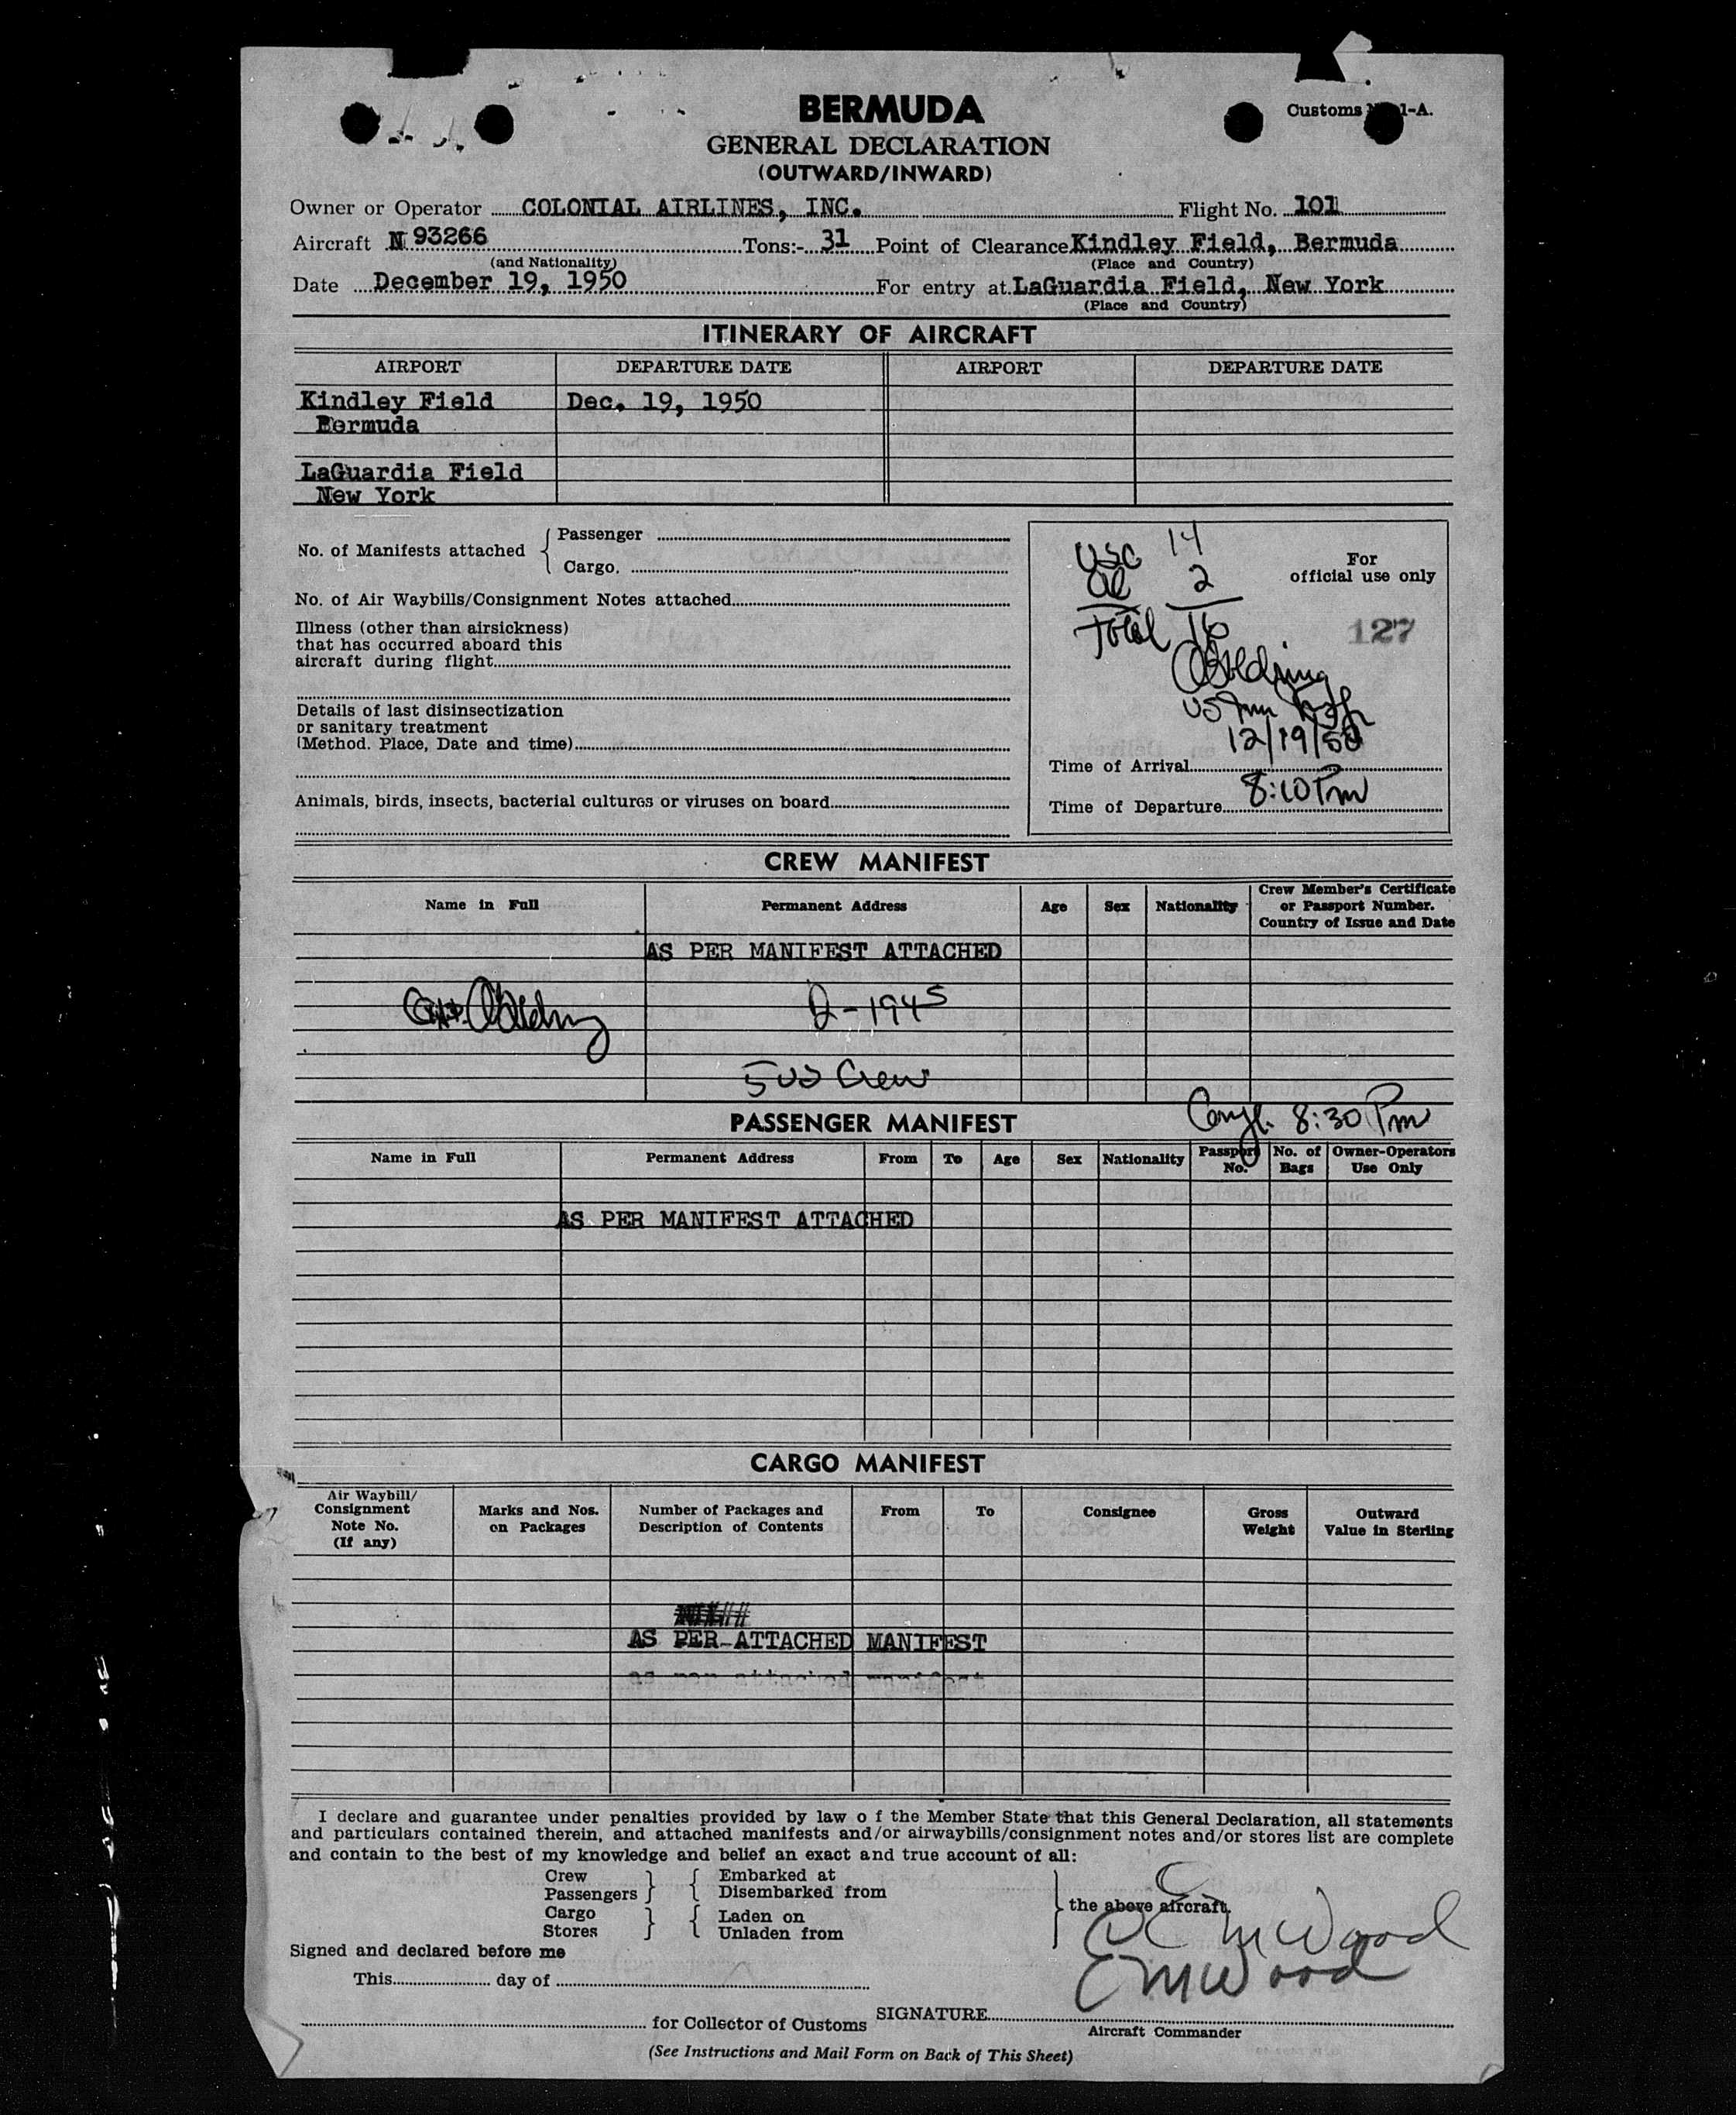 BERMUDA
Customs 1-A.
GENERAL DECLARATION
(OUTWARD/INWARD)
Owner or Operator COLONIAL AIRLINES, INC. Flight No. 101
Aircraft N 93266 Tons:- 31 Point of Clearance Kindley Field, Bermuda
(and Nationality) (Place and Country)
Date December 19, 1950 For entry at LaGuardia Field, New York
(Place and Country)
ITINERARY OF AIRCRAFT
AIRPORT DEPARTURE DATE AIRPORT DEPARTURE DATE
Kindley Field Dec. 19, 1950
Bermuda
LaGuardia Field
New York
No. of Manifests attached { Passenger
Cargo.
No. of Air Waybills/Consignment Notes attached
Illness (other than airsickness)
that has occurred aboard this
aircraft during flight
Details of last disinsectization
or sanitary treatment
(Method. Place, Date and time)
Animals, birds, insects, bacterial cultures or viruses on board
USC 14
al 2
Total 16
For
official use only
127
12/19/50
Time of Arrival
8:10 Pm
Time of Departure
CREW MANIFEST
Name in Full Permanent Address Age Sex Nationality Crew Member's Certificate
or Passport Number.
Country of Issue and Date
AS PER MANIFEST ATTACHED
Q-1945
5 US Crew
PASSENGER MANIFEST
8:30 Pm
Name in Full Permanent Address From To Age Sex Nationality Passport No. No. of Bags Owner-Operators Use Only
AS PER MANIFEST ATTACHED
CARGO MANIFEST
Air Waybill/
Consignment
Note No.
(If any)
Marks and Nos.
on Packages
Number of Packages and
Description of Contents
From To Consignee
Gross
Weight
Outward
Value in Sterling
AS PER ATTACHED MANIFEST
as per attached manifest
I declare and guarantee under penalties provided by law o f the Member State that this General Declaration, all statements
and particulars contained therein, and attached manifests and/or airwaybills/consignment notes and/or stores list are complete
and contain to the best of my knowledge and belief an exact and true account of all:
Crew } { Embarked at
Passengers } { Disembarked from
Cargo } { Laden on
Stores } { Unladen from
} the above aircraft.
Signed and declared before me
This day of
E M Wood
for Collector of Customs SIGNATURE
Aircraft Commander
(See Instructions and Mail Form on Back of This Sheet)